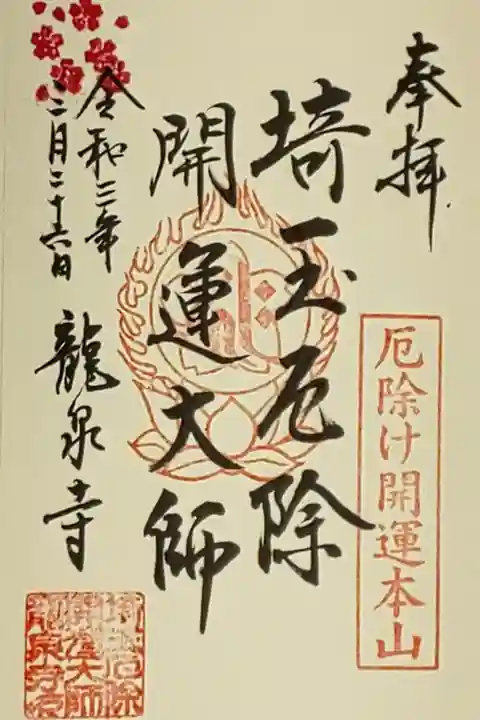 奉拝
厄除け開運本山
埼玉厄除
開運大師
令和三年
三月二十六日
龍泉寺
埼玉厄除
開運大師
龍泉寺